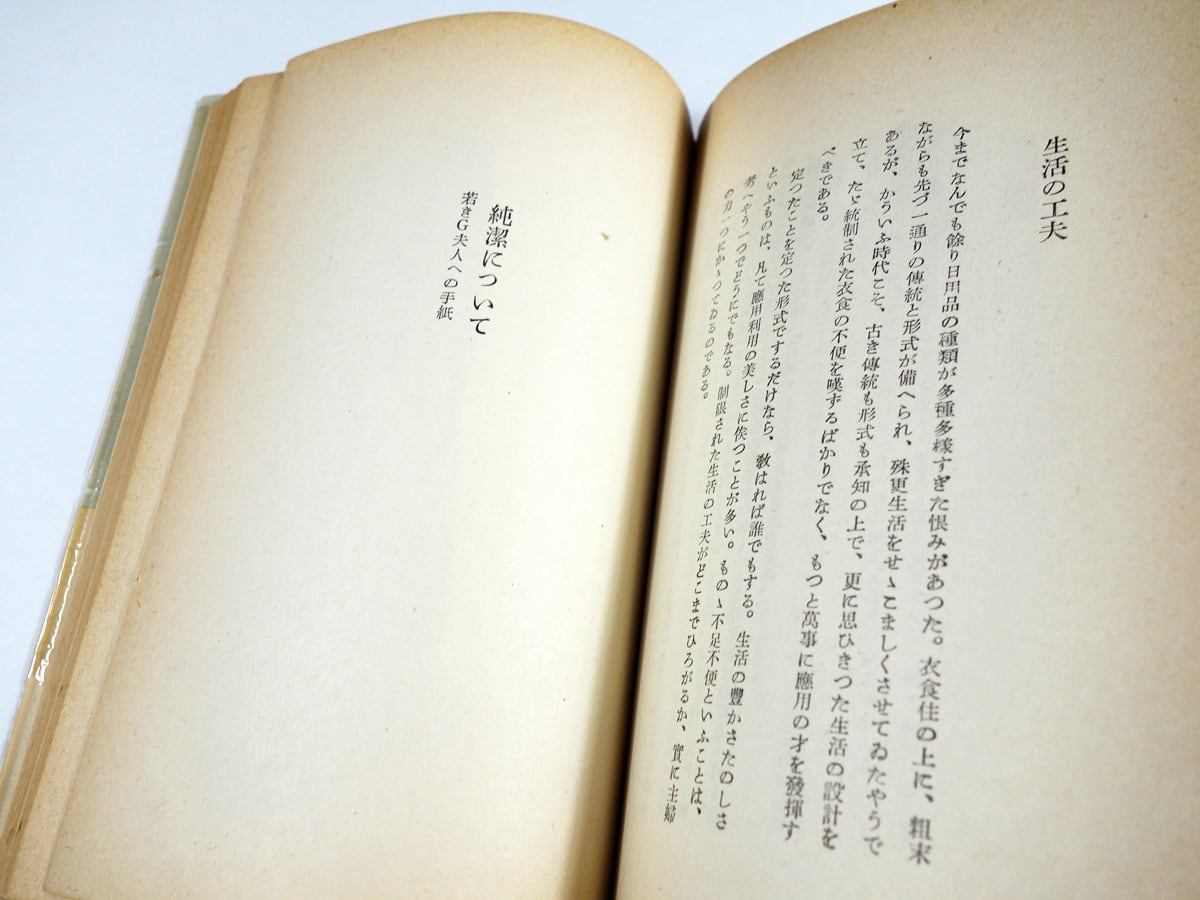 生活の工夫
今までなんでも餘り日用品の種類が多種多樣すぎた恨みがあつた。衣食住の上に、粗末
ながらも先づ一通りの傳統と形式が備へられ、殊更生活をせゝこましくさせてゐたやうで
あるが、かういふ時代こそ、古き傳統も形式も承知の上で、更に思ひきつた生活の設計を
立て、たゞ統制された衣食の不便を嘆ずるばかりでなく、もつと萬事に應用の才を發揮す
べきである。
定つたことを定つた形式でするだけなら、敎はれば誰でもする。生活の豐かさたのしさ
といふものは、凡て應用利用の美しさに俟つことが多い。ものゝ不足不便といふことは、
考へやう一つでどうにでもなる。制限された生活の工夫がどこまでひろがるか、實に主婦
の力一つにかゝつてゐるのである。
純潔について
若きG夫人への手紙